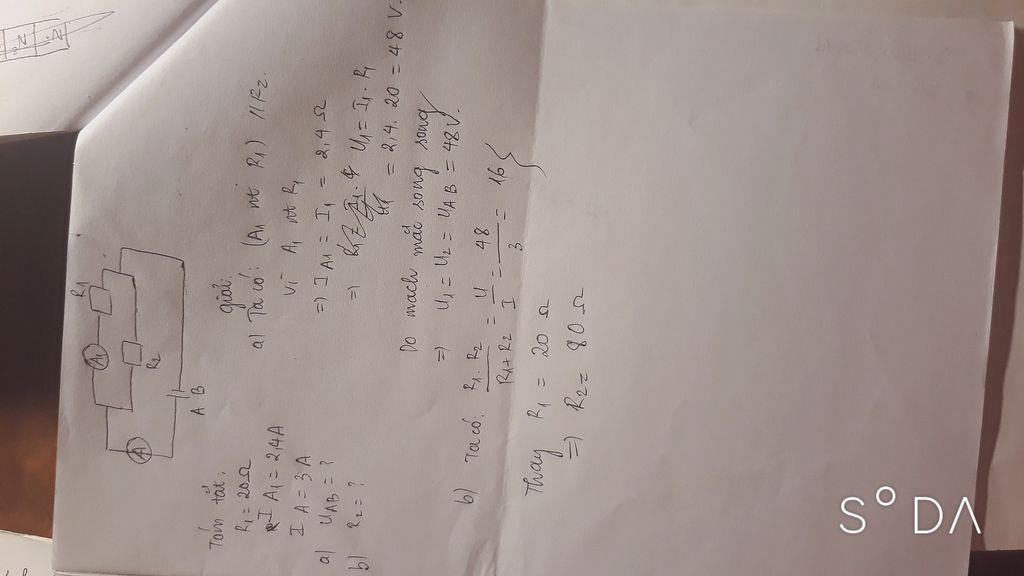 R1
A1
R2
A
A B
Tóm tắt:
R1 = 20Ω
I A1 = 2,4A
I A = 3 A
a) UAB = ?
b) R2 = ?
giải:
a) Ta có: (A1 nt R1) // R2.
Vì A1 nt R1
=> I A1 = I1 = 2,4 Ω
=> U1 = I1 . R1
= 2,4 . 20 = 48 V.
Do mạch mắc song song
=> U1 = U2 = UAB = 48V.
b) Ta có: R1 . R2 / R1 + R2 = U / I = 48 / 3 = 16 }
Thay R1 = 20 Ω
=> R2 = 80 Ω
SODA